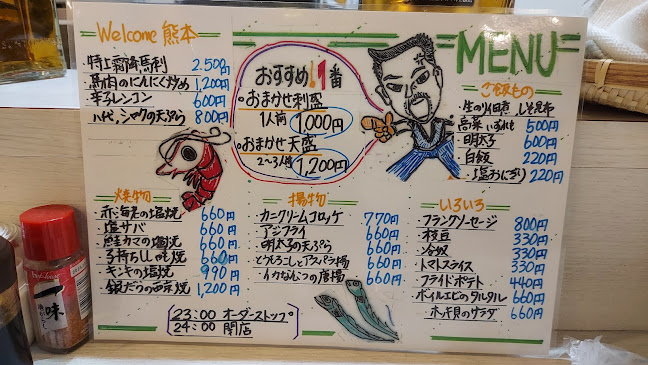 Welcome 熊本
・特上霜降馬刺 2,500円
・馬肉のにんにく炒め 1,200円
・辛子レンコン 600円
・八代、シャクの天ぷら 800円
おすすめ!1番
おまかせ刺盛
1人前 1,000円
おまかせ天盛
2〜3人前 1,200円
MENU
ご飯もの
・生のり佃煮 しそ昆布
高菜 いずれも 500円
・明太子 600円
・白飯 220円
・塩おにぎり 220円
焼物
・赤海老の塩焼 660円
・塩サバ 660円
・鮭カマの塩焼 660円
・子持ちししゃも焼 660円
・キンキの塩焼 990円
・銀だらの西京焼 1,200円
揚物
・カニクリームコロッケ 770円
・アジフライ 660円
・明太子の天ぷら 660円
・とうもろこしとアスパラ揚 660円
・イカなんこつの唐揚 660円
いろいろ
・フランクソーセージ 800円
・枝豆 330円
・冷奴 330円
・トマトスライス 330円
・フライドポテト 440円
・ボイルエビのタルタル 660円
・ホッキ貝のサラダ 660円
23:00 オーダーストップ。
24:00 閉店
一味